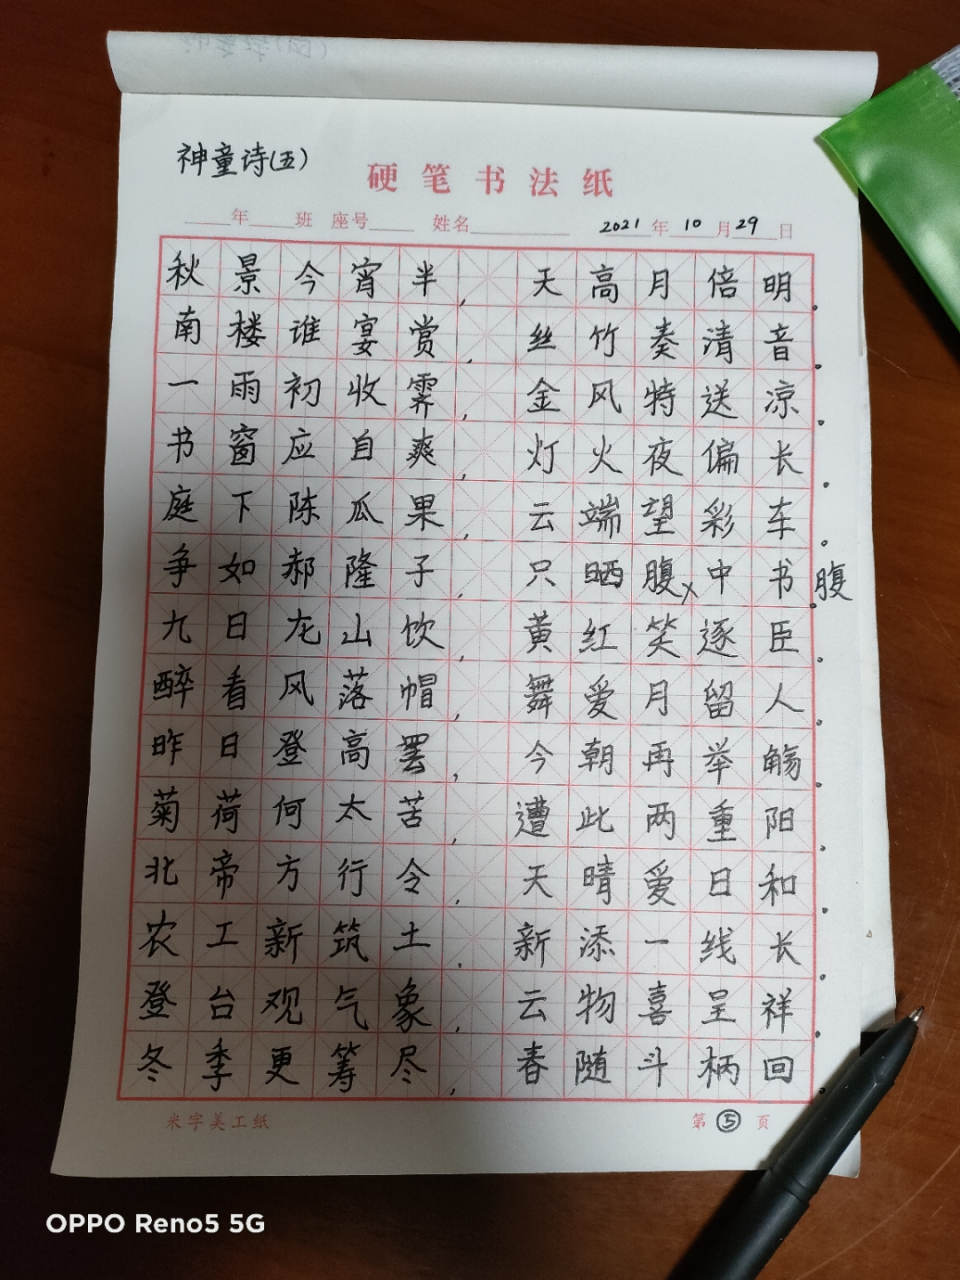 神童诗(五)
硬笔书法纸
年 班 座号 姓名 2021年 10月29日
秋景今宵半，天高月倍明。
南楼谁宴赏，丝竹奏清音。
一雨初收霁，金风特送凉。
书窗应自爽，灯火夜偏长。
庭下陈瓜果，云端望彩车。
争如郝隆子，只晒腹中书。腹
九日龙山饮，黄红笑逐臣。
醉看风落帽，舞爱月留人。
昨日登高罢，今朝再举觞。
菊荷何太苦，遭此两重阳。
北帝方行令，天晴爱日和。
农工新筑土，新添一线长。
登台观气象，云物喜呈祥。
冬季更筹尽，春随斗柄回。
米字美工纸 第⑤页
OPPO Reno5 5G